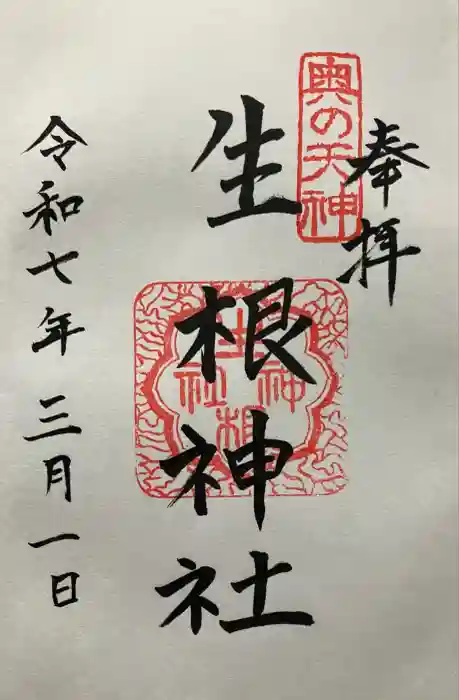 奉拝
奥の天神
生根神社
生根神社
令和七年三月一日